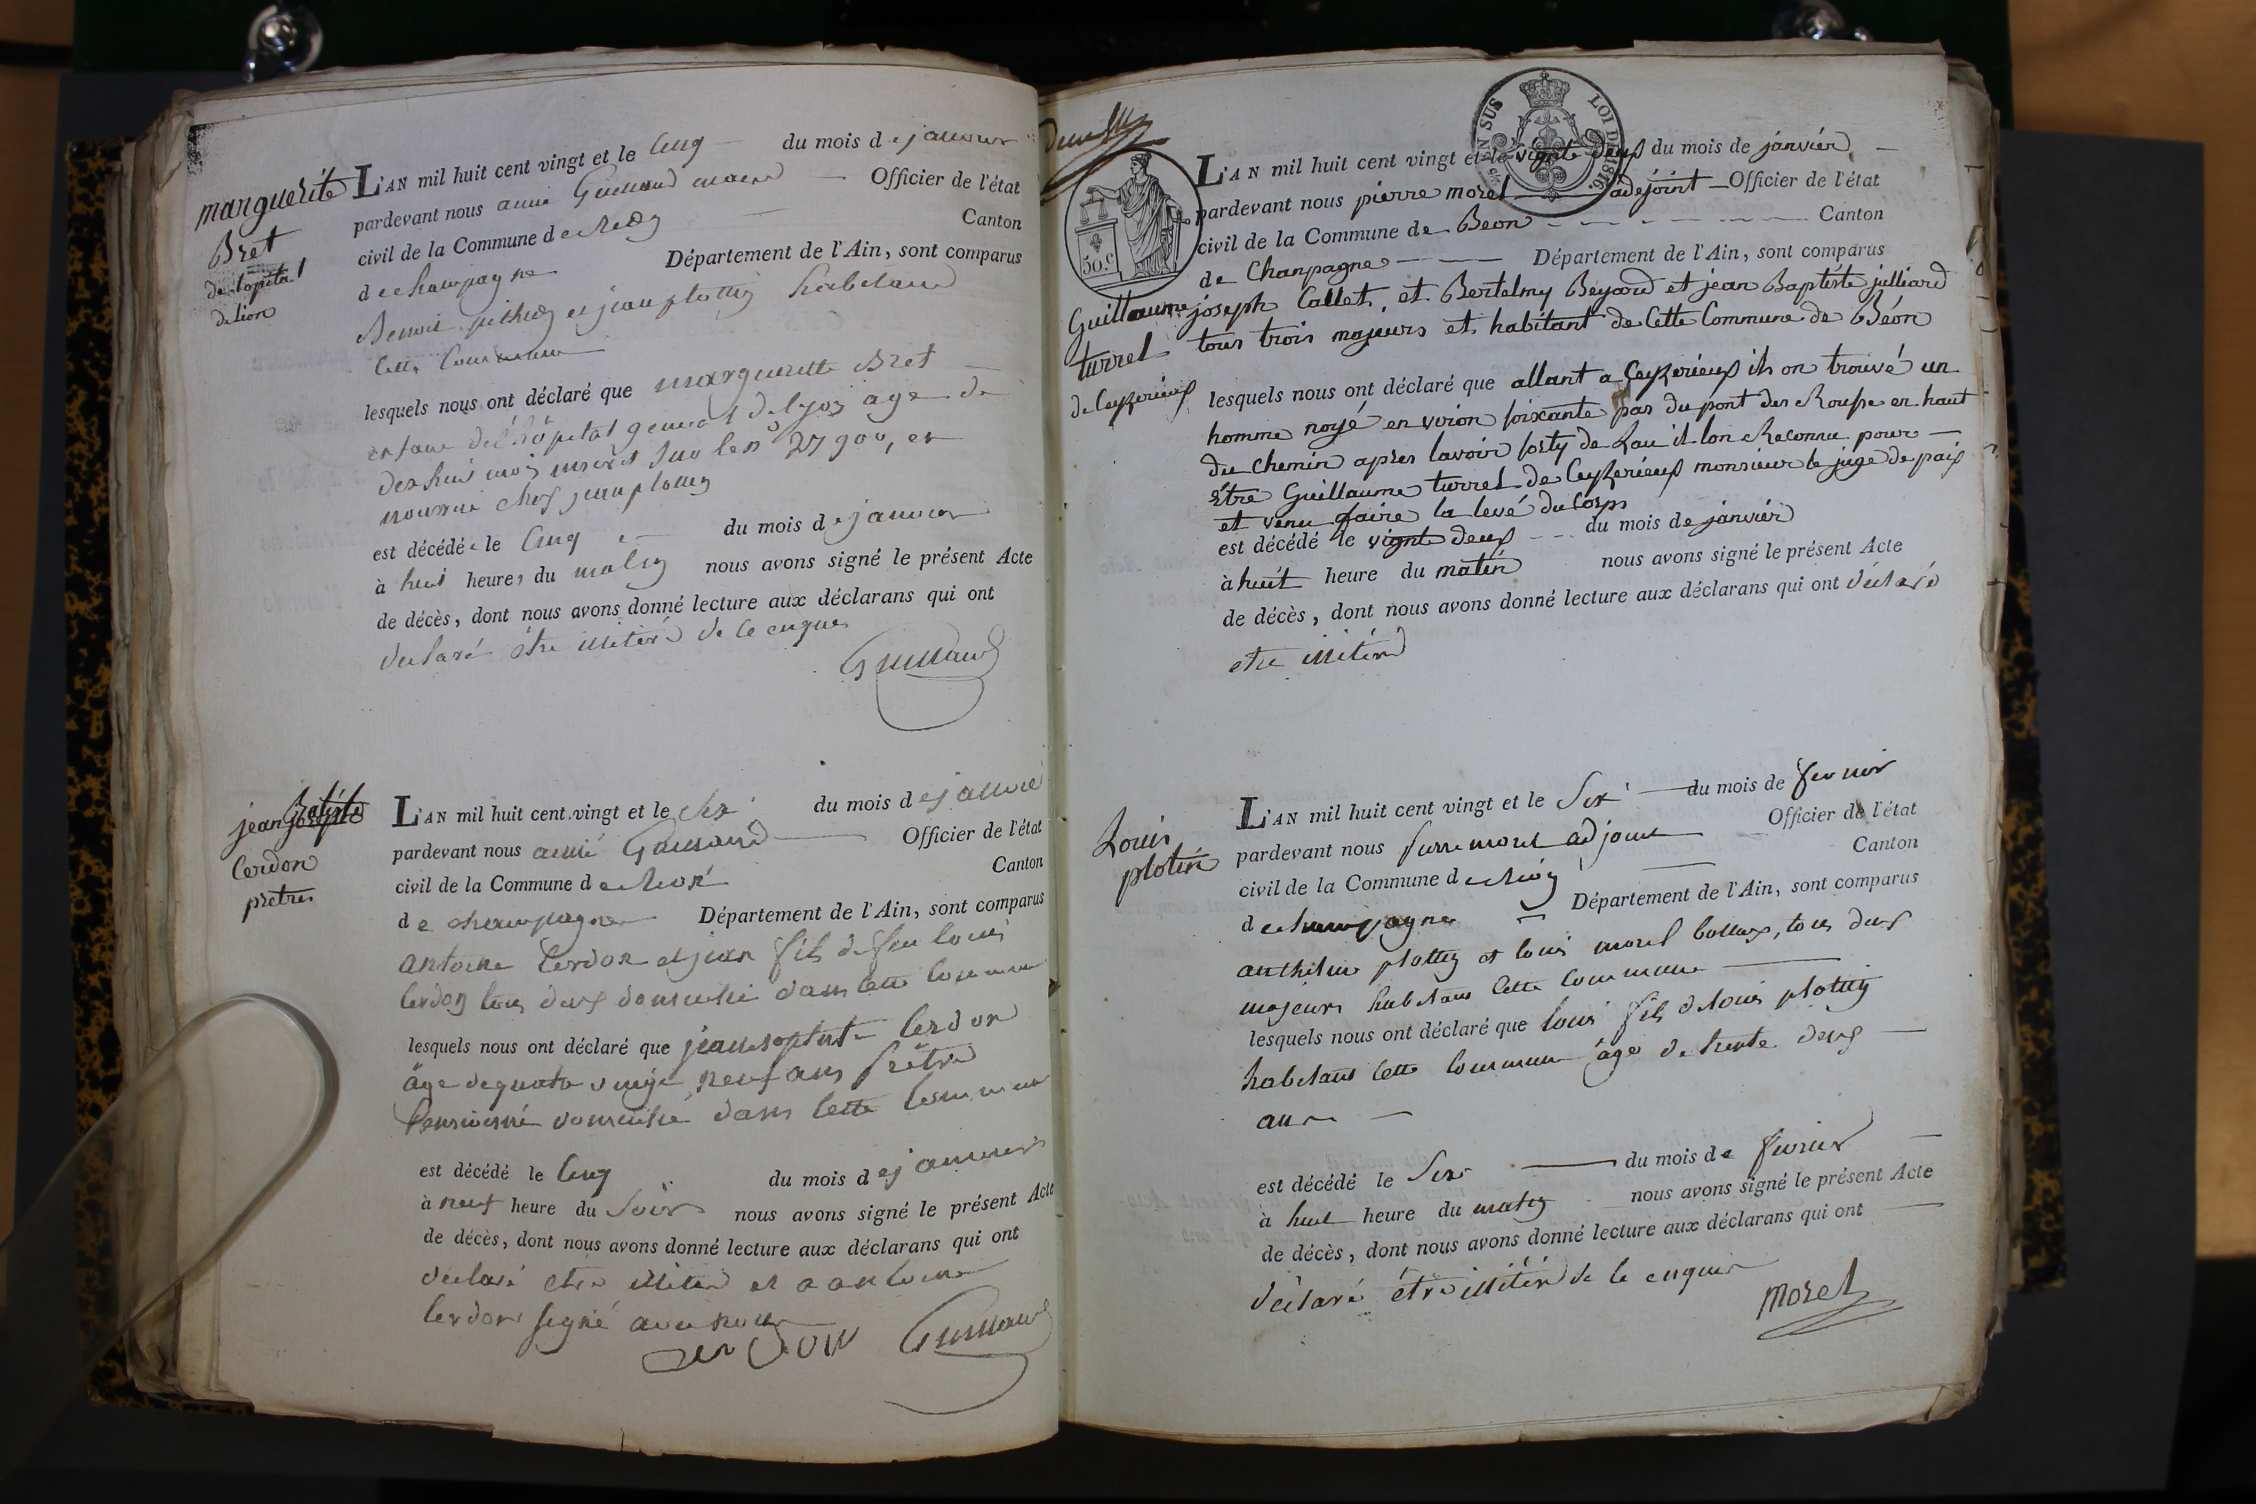 marguerite
Bret
de lopital
de lion
L'AN mil huit cent vingt et le Cinq du mois de janvier
pardevant nous aimé Guillaud maire Officier de l'état
civil de la Commune de Béon Canton
de champagne Département de l'Ain, sont comparus
Benoit et jean plottin habitant
Cette Commune
lesquels nous ont déclaré que marguerite Bret
enfant de l'hôpital general de lyon age de
dix huit mois inscrit sur le no 27900, et
nourrie chez jean plottin
est décédée le Cinq du mois de janvier
à huit heures du matin nous avons signé le présent Acte
de décès, dont nous avons donné lecture aux déclarans qui ont
déclaré être illitéré de ce enquis
Guillaud
jean Batiste
Cerdon
prêtre
L'AN mil huit cent vingt et le Six du mois de janvié
pardevant nous aimé Guillaud Officier de l'état
civil de la Commune de Béon Canton
de champagne Département de l'Ain, sont comparus
antoine Cerdon et jean fils de feu louis
Cerdon tous deux domicilié dans cette Commune
lesquels nous ont déclaré que jean Cerdon
âge de quatre vingt neuf ans Prêtre
Pensionné domicilié dans cette Commune
est décédé le Cinq du mois de janvier
à neuf heure du Soir nous avons signé le présent Acte
de décès, dont nous avons donné lecture aux déclarans qui ont
déclaré etre illitéré et antoine
Cerdon signé avec nous
cerdon Guillaud
deux
50.c
EN SUS LOI DE 1816.
Guillaume
turrel
de Ceyzerieux
L'AN mil huit cent vingt et le vignte deux du mois de janvier
pardevant nous pierre morel adejoint Officier de l'état
civil de la Commune de Beon Canton
de Chanpagne Département de l'Ain, sont comparus
joseph Callet, et Bertelmy Beyard et jean Baptiste julliard
tous trois majeurs et habitant de Cette Commune de Béon
lesquels nous ont déclaré que allant a Ceyzerieux ils on trouvé un
homme noyé en viron soixante pas du pont des Rousse en haut
du chemin apres lavoir sorty de Lau il lon Reconnu pour
être Guillaume turrel de Ceyzerieux monsieur le juge de paix
et venu faire la levé du Corps
est décédé le vignte deux du mois de janvier
à huit heure du matin nous avons signé le présent Acte
de décès, dont nous avons donné lecture aux déclarans qui ont déclaré
etre illitéré
Louis
plotin
L'AN mil huit cent vingt et le Six du mois de fevrier
pardevant nous pierre morel adjoint Officier de l'état
civil de la Commune de Béon Canton
de champagne Département de l'Ain, sont comparus
anthelme plottin et louis morel, tous deux
majeurs habitans Cette Commune
lesquels nous ont déclaré que louis fils de louis plottin
habitant Cette Commune âge de trente deux
ans
est décédé le Six du mois de fevrier
à huit heure du matin nous avons signé le présent Acte
de décès, dont nous avons donné lecture aux déclarans qui ont
déclaré être illitéré de ce enquis
morel